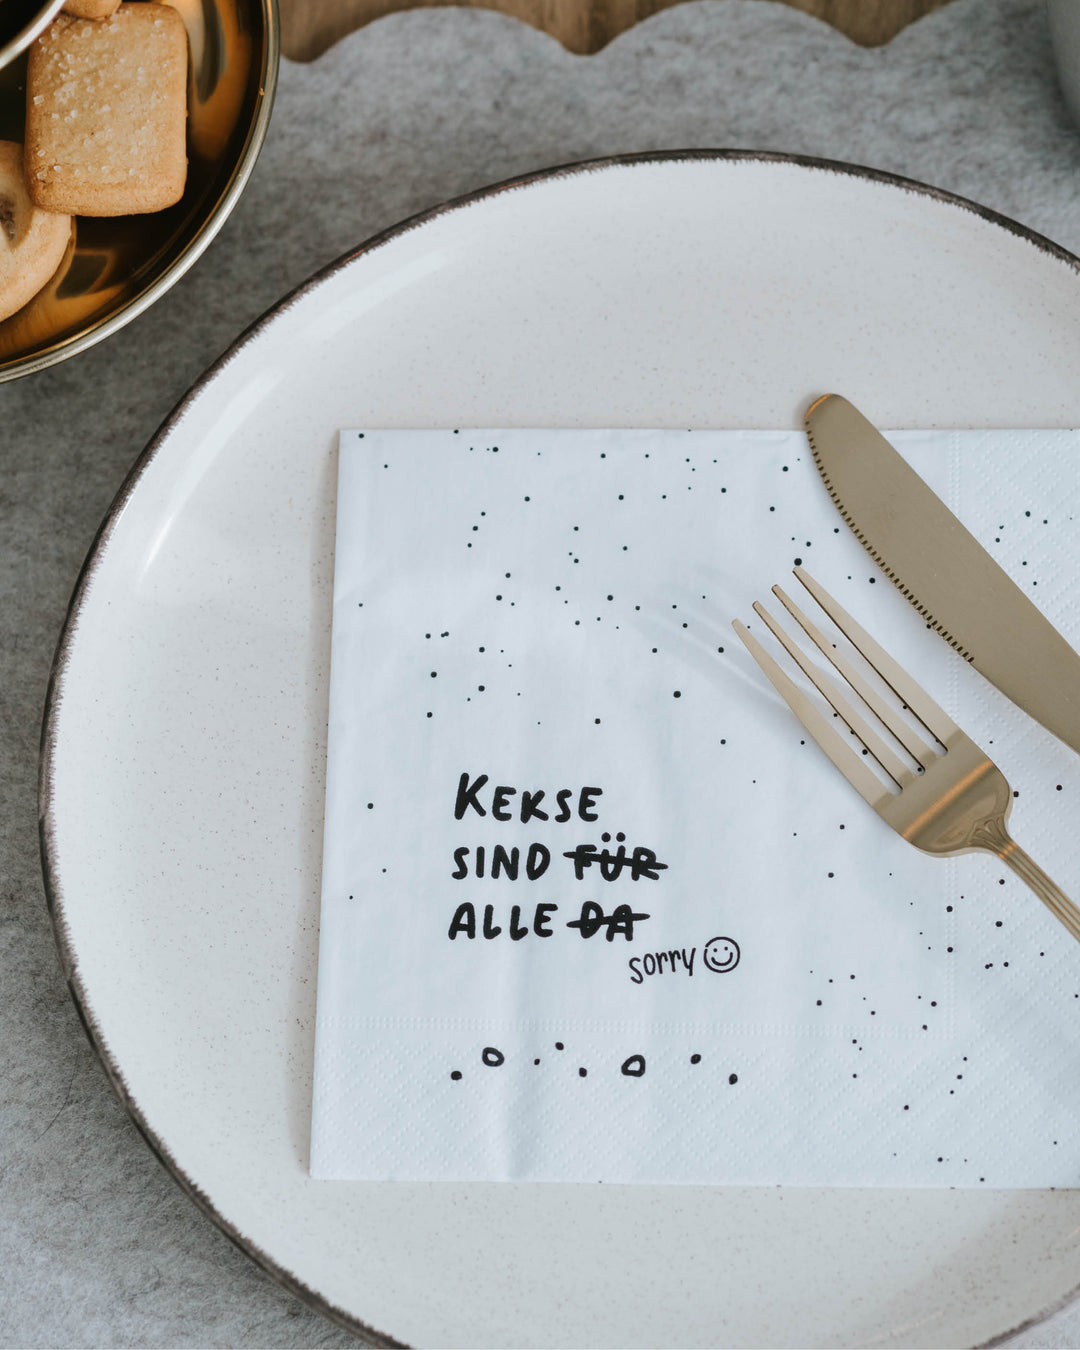 KEKSE
SIND FÜR
ALLE DA
sorry